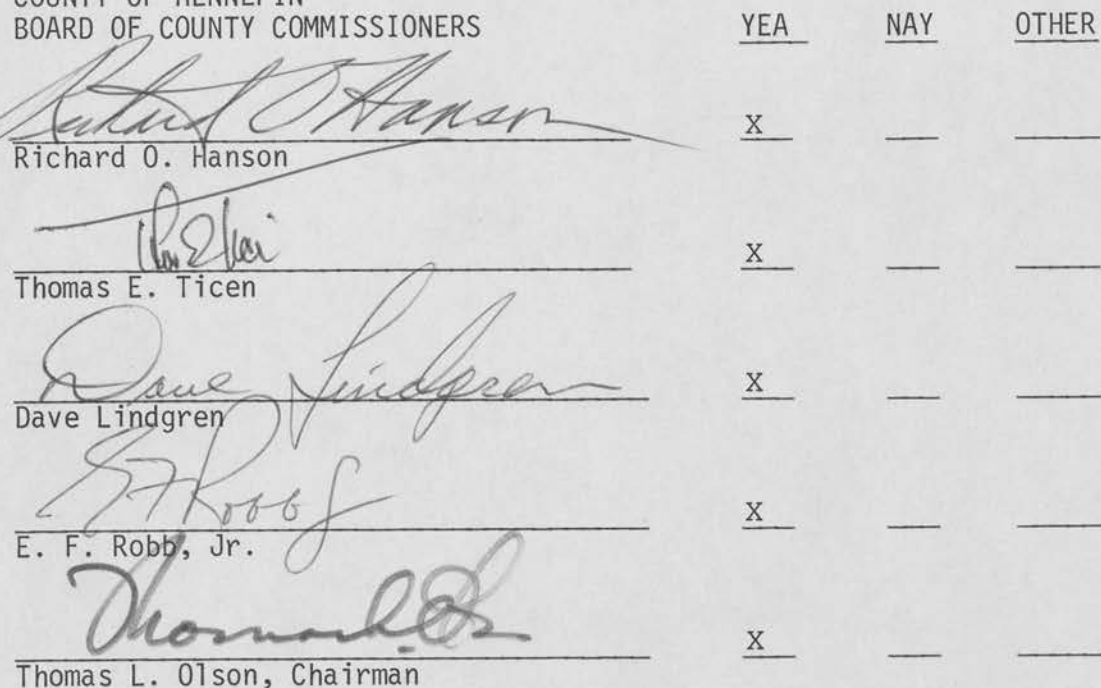 COUNTY OF HENNEPIN
BOARD OF COUNTY COMMISSIONERS YEA NAY OTHER
Richard O Hanson X
Richard O. Hanson
X
Thomas E. Ticen
Dave Lindgren X
Dave Lindgren
E F Robb Jr X
E. F. Robb, Jr.
X
Thomas L. Olson, Chairman